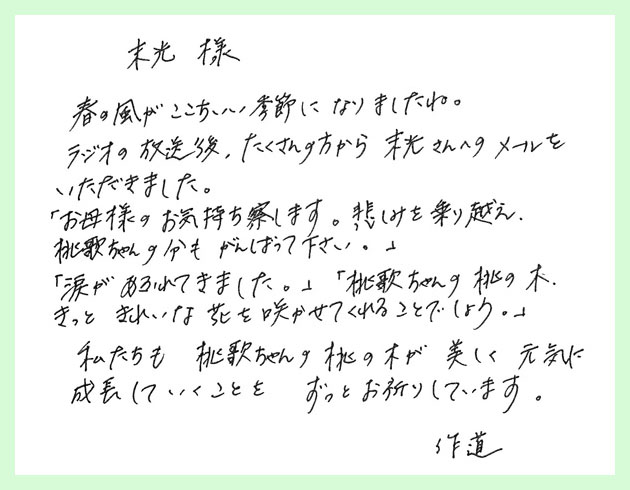 末光 様
春の風がここちいい季節になりましたね。
ラジオの放送後、たくさんの方から末光さんへのメールを
いただきました。
「お母様のお気持ち察します。悲しみを乗り越え、
桃歌ちゃんの分もがんばって下さい。」
「涙があふれてきました。」「桃歌ちゃんの桃の木、
きっときれいな花を咲かせてくれることでしょう。」
私たちも 桃歌ちゃんの桃の木が 美しく 元気に
成長していくことを ずっとお祈りしています。
作道